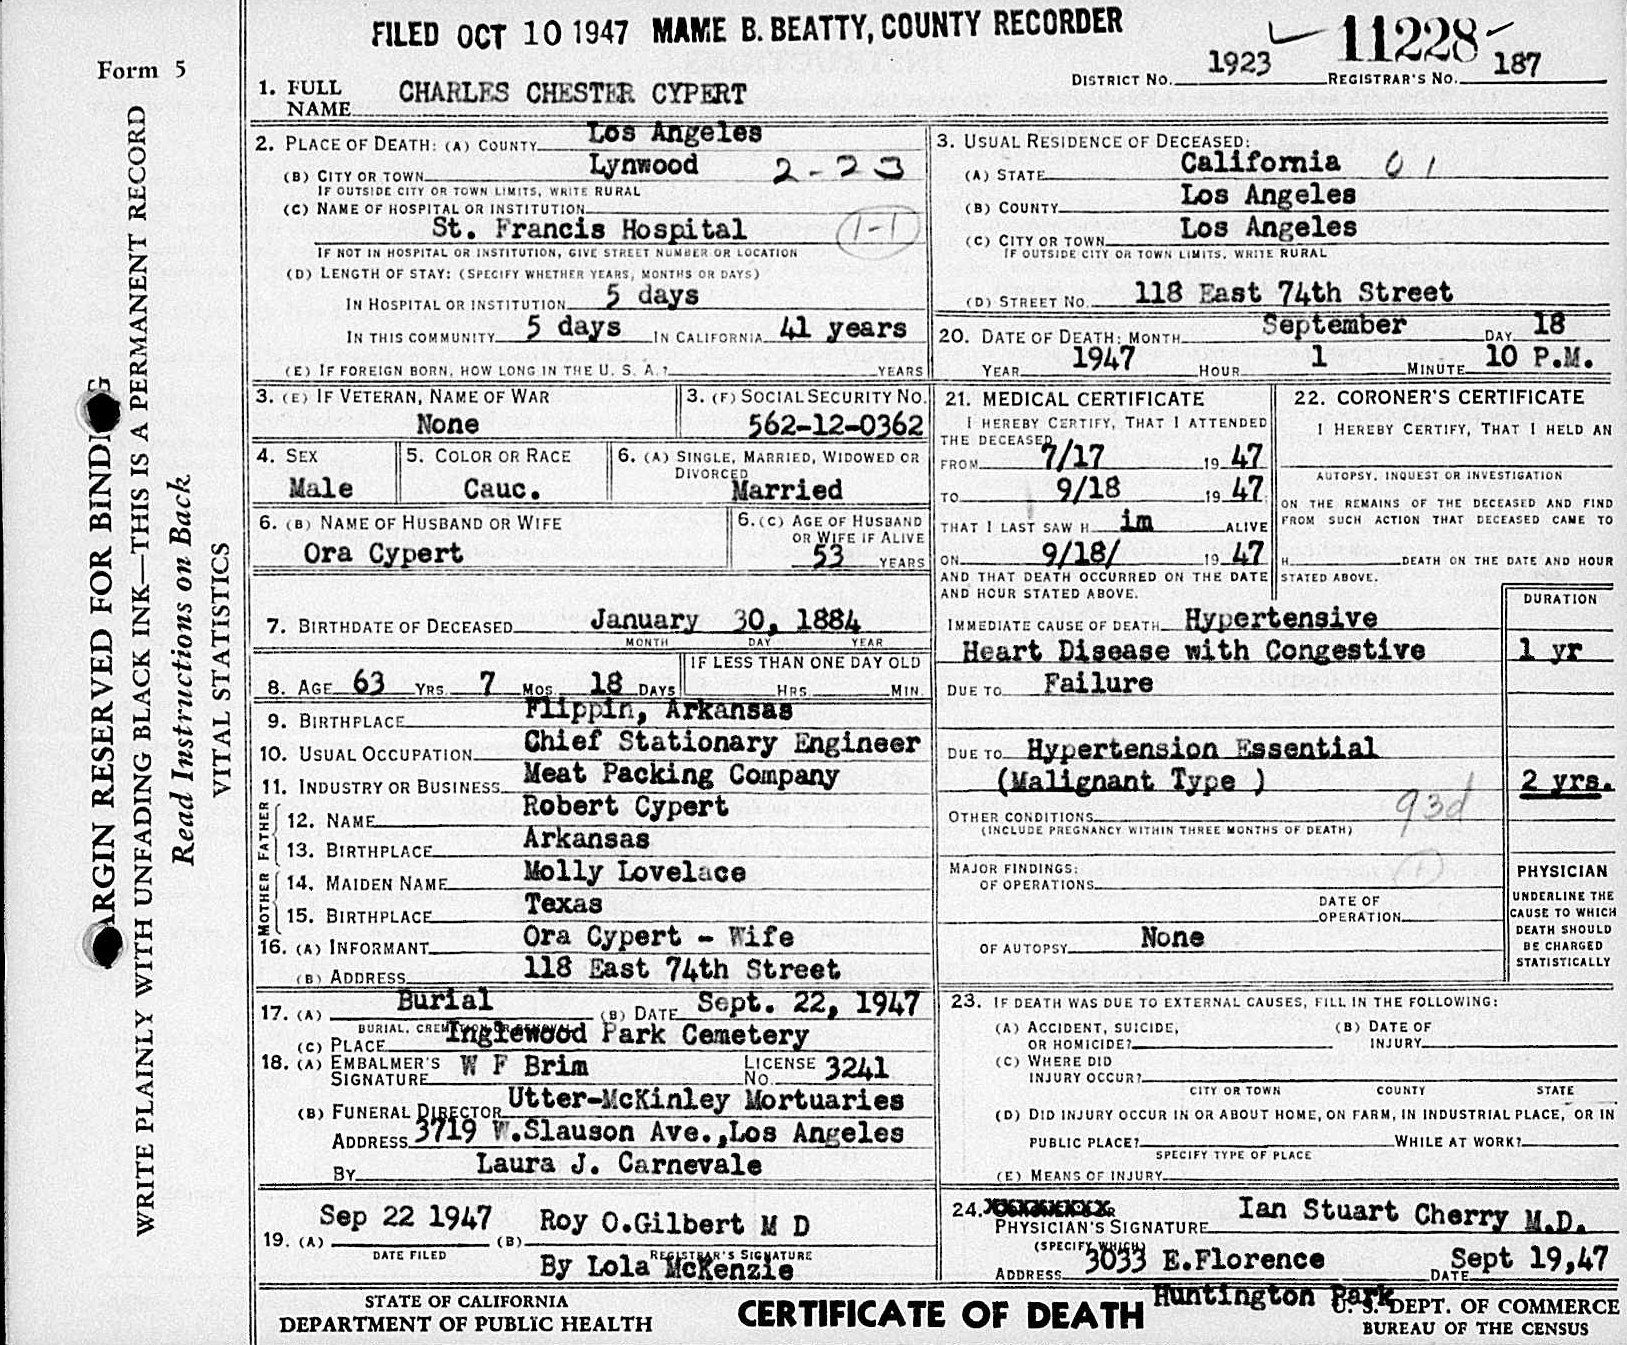 FILED OCT 10 1947 MAME B. BEATTY, COUNTY RECORDER
11228
Form 5
DISTRICT NO. 1923 REGISTRAR'S NO. 187
1. FULL NAME CHARLES CHESTER CYPERT
MARGIN RESERVED FOR BINDING
WRITE PLAINLY WITH UNFADING BLACK INK—THIS IS A PERMANENT RECORD
Read Instructions on Back
VITAL STATISTICS
2. PLACE OF DEATH: (A) COUNTY Los Angeles
(B) CITY OR TOWN Lynwood 2-23
IF OUTSIDE CITY OR TOWN LIMITS, WRITE RURAL
(C) NAME OF HOSPITAL OR INSTITUTION
St. Francis Hospital 1-1
IF NOT IN HOSPITAL OR INSTITUTION, GIVE STREET NUMBER OR LOCATION
(D) LENGTH OF STAY: (SPECIFY WHETHER YEARS, MONTHS OR DAYS)
IN HOSPITAL OR INSTITUTION 5 days
IN THIS COMMUNITY 5 days IN CALIFORNIA 41 years
(E) IF FOREIGN BORN, HOW LONG IN THE U. S. A.? YEARS
3. USUAL RESIDENCE OF DECEASED:
(A) STATE California 01
(B) COUNTY Los Angeles
(C) CITY OR TOWN Los Angeles
IF OUTSIDE CITY OR TOWN LIMITS, WRITE RURAL
(D) STREET NO. 118 East 74th Street
20. DATE OF DEATH: MONTH September DAY 18
YEAR 1947 HOUR 1 MINUTE 10 P.M.
3. (E) IF VETERAN, NAME OF WAR
None
3. (F) SOCIAL SECURITY NO.
562-12-0362
4. SEX
Male
5. COLOR OR RACE
Cauc.
6. (A) SINGLE, MARRIED, WIDOWED OR DIVORCED
Married
6. (B) NAME OF HUSBAND OR WIFE
Ora Cypert
6. (C) AGE OF HUSBAND OR WIFE IF ALIVE
53 YEARS
7. BIRTHDATE OF DECEASED January 30, 1884
MONTH DAY YEAR
8. AGE 63 YRS. 7 MOS. 18 DAYS
IF LESS THAN ONE DAY OLD
HRS. MIN.
9. BIRTHPLACE Flippin, Arkansas
10. USUAL OCCUPATION Chief Stationary Engineer
11. INDUSTRY OR BUSINESS Meat Packing Company
FATHER
12. NAME Robert Cypert
13. BIRTHPLACE Arkansas
MOTHER
14. MAIDEN NAME Molly Lovelace
15. BIRTHPLACE Texas
16. (A) INFORMANT Ora Cypert - Wife
(B) ADDRESS 118 East 74th Street
17. (A) Burial (B) DATE Sept. 22, 1947
BURIAL, CREMATION OR REMOVAL
(C) PLACE Inglewood Park Cemetery
18. (A) EMBALMER'S SIGNATURE W F Brim LICENSE NO. 3241
(B) FUNERAL DIRECTOR Utter-McKinley Mortuaries
ADDRESS 3719 W.Slauson Ave.,Los Angeles
BY Laura J. Carnevale
19. (A) Sep 22 1947 (B) Roy O.Gilbert M D
DATE FILED REGISTRAR'S SIGNATURE
By Lola McKenzie
21. MEDICAL CERTIFICATE
I HEREBY CERTIFY, THAT I ATTENDED
THE DECEASED
FROM 7/17 19 47
TO 9/18 19 47
THAT I LAST SAW H im ALIVE
ON 9/18/ 19 47
AND THAT DEATH OCCURRED ON THE DATE
AND HOUR STATED ABOVE.
22. CORONER'S CERTIFICATE
I HEREBY CERTIFY, THAT I HELD AN
AUTOPSY, INQUEST OR INVESTIGATION
ON THE REMAINS OF THE DECEASED AND FIND
FROM SUCH ACTION THAT DECEASED CAME TO
H DEATH ON THE DATE AND HOUR
STATED ABOVE.
DURATION
IMMEDIATE CAUSE OF DEATH Hypertensive
Heart Disease with Congestive 1 yr
DUE TO Failure
DUE TO Hypertension Essential
(Malignant Type ) 2 yrs.
OTHER CONDITIONS 93d
(INCLUDE PREGNANCY WITHIN THREE MONTHS OF DEATH)
MAJOR FINDINGS:
OF OPERATIONS
DATE OF OPERATION
OF AUTOPSY None
PHYSICIAN
UNDERLINE THE
CAUSE TO WHICH
DEATH SHOULD
BE CHARGED
STATISTICALLY
23. IF DEATH WAS DUE TO EXTERNAL CAUSES, FILL IN THE FOLLOWING:
(A) ACCIDENT, SUICIDE, OR HOMICIDE? (B) DATE OF INJURY
(C) WHERE DID INJURY OCCUR?
CITY OR TOWN COUNTY STATE
(D) DID INJURY OCCUR IN OR ABOUT HOME, ON FARM, IN INDUSTRIAL PLACE, OR IN
PUBLIC PLACE? WHILE AT WORK?
SPECIFY TYPE OF PLACE
(E) MEANS OF INJURY
24. PHYSICIAN'S SIGNATURE Ian Stuart Cherry M.D.
(SPECIFY WHICH)
ADDRESS 3033 E.Florence DATE Sept 19,47
Huntington Park
STATE OF CALIFORNIA
DEPARTMENT OF PUBLIC HEALTH
CERTIFICATE OF DEATH
U. S. DEPT. OF COMMERCE
BUREAU OF THE CENSUS